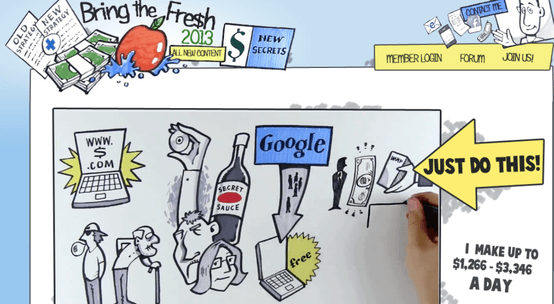 OLD
STRATEGY
NEW
STRATEGY
Bring the Fre$h
2013
ALL NEW CONTENT
$
NEW
SECRETS
CONTACT ME
MEMBER LOGIN
FORUM
JOIN US!
WWW.
$
.COM
SECRET
SAUCE
Google
free
JUST DO THIS!
I MAKE UP TO
$1,266 - $3,346
A DAY